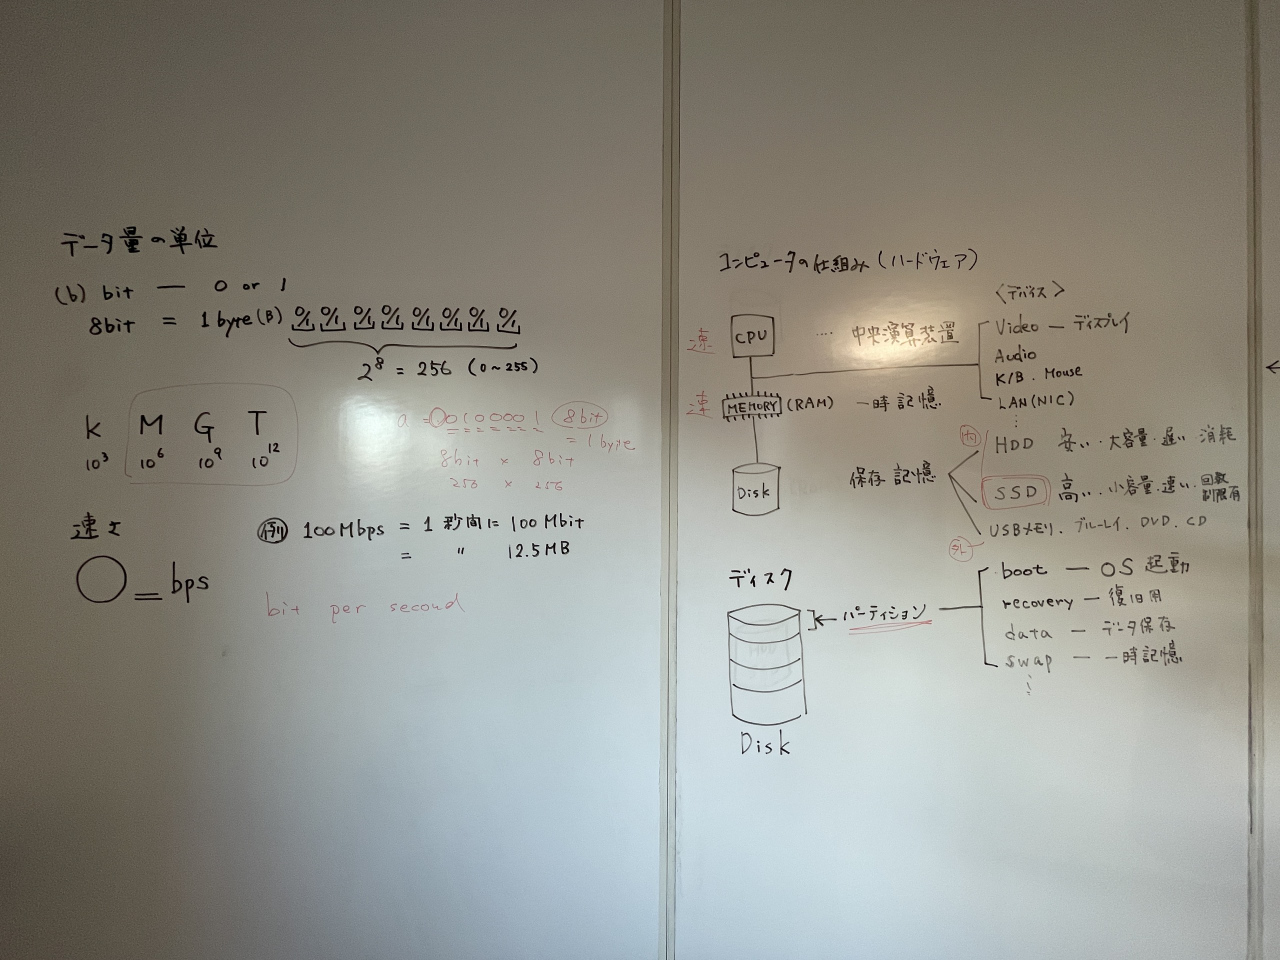 データ量の単位
(b) bit — 0 or 1
8bit = 1byte(B) 0/1 0/1 0/1 0/1 0/1 0/1 0/1 0/1
2^8 = 256 (0~255)
k M G T
10^3 10^6 10^9 10^12
a = 00100001 8bit
= 1byte
8bit × 8bit
256 × 256
速さ
○_bps
例 100Mbps = 1秒間に 100Mbit
= 〃 12.5MB
bit per second
コンピュータの仕組み(ハードウェア)
<デバイス>
速 CPU … 中央演算装置
Video — ディスプレイ
Audio
K/B . Mouse
LAN(NIC)
速 MEMORY (RAM) 一時記憶
Disk 保存記憶
内 HDD 安い・大容量・遅い・消耗
SSD 高い・小容量・速い・回数制限有
外 USBメモリ、ブルーレイ、DVD、CD
ディスク
← パーティション
boot — OS起動
recovery — 復旧用
data — データ保存
swap — 一時記憶
Disk